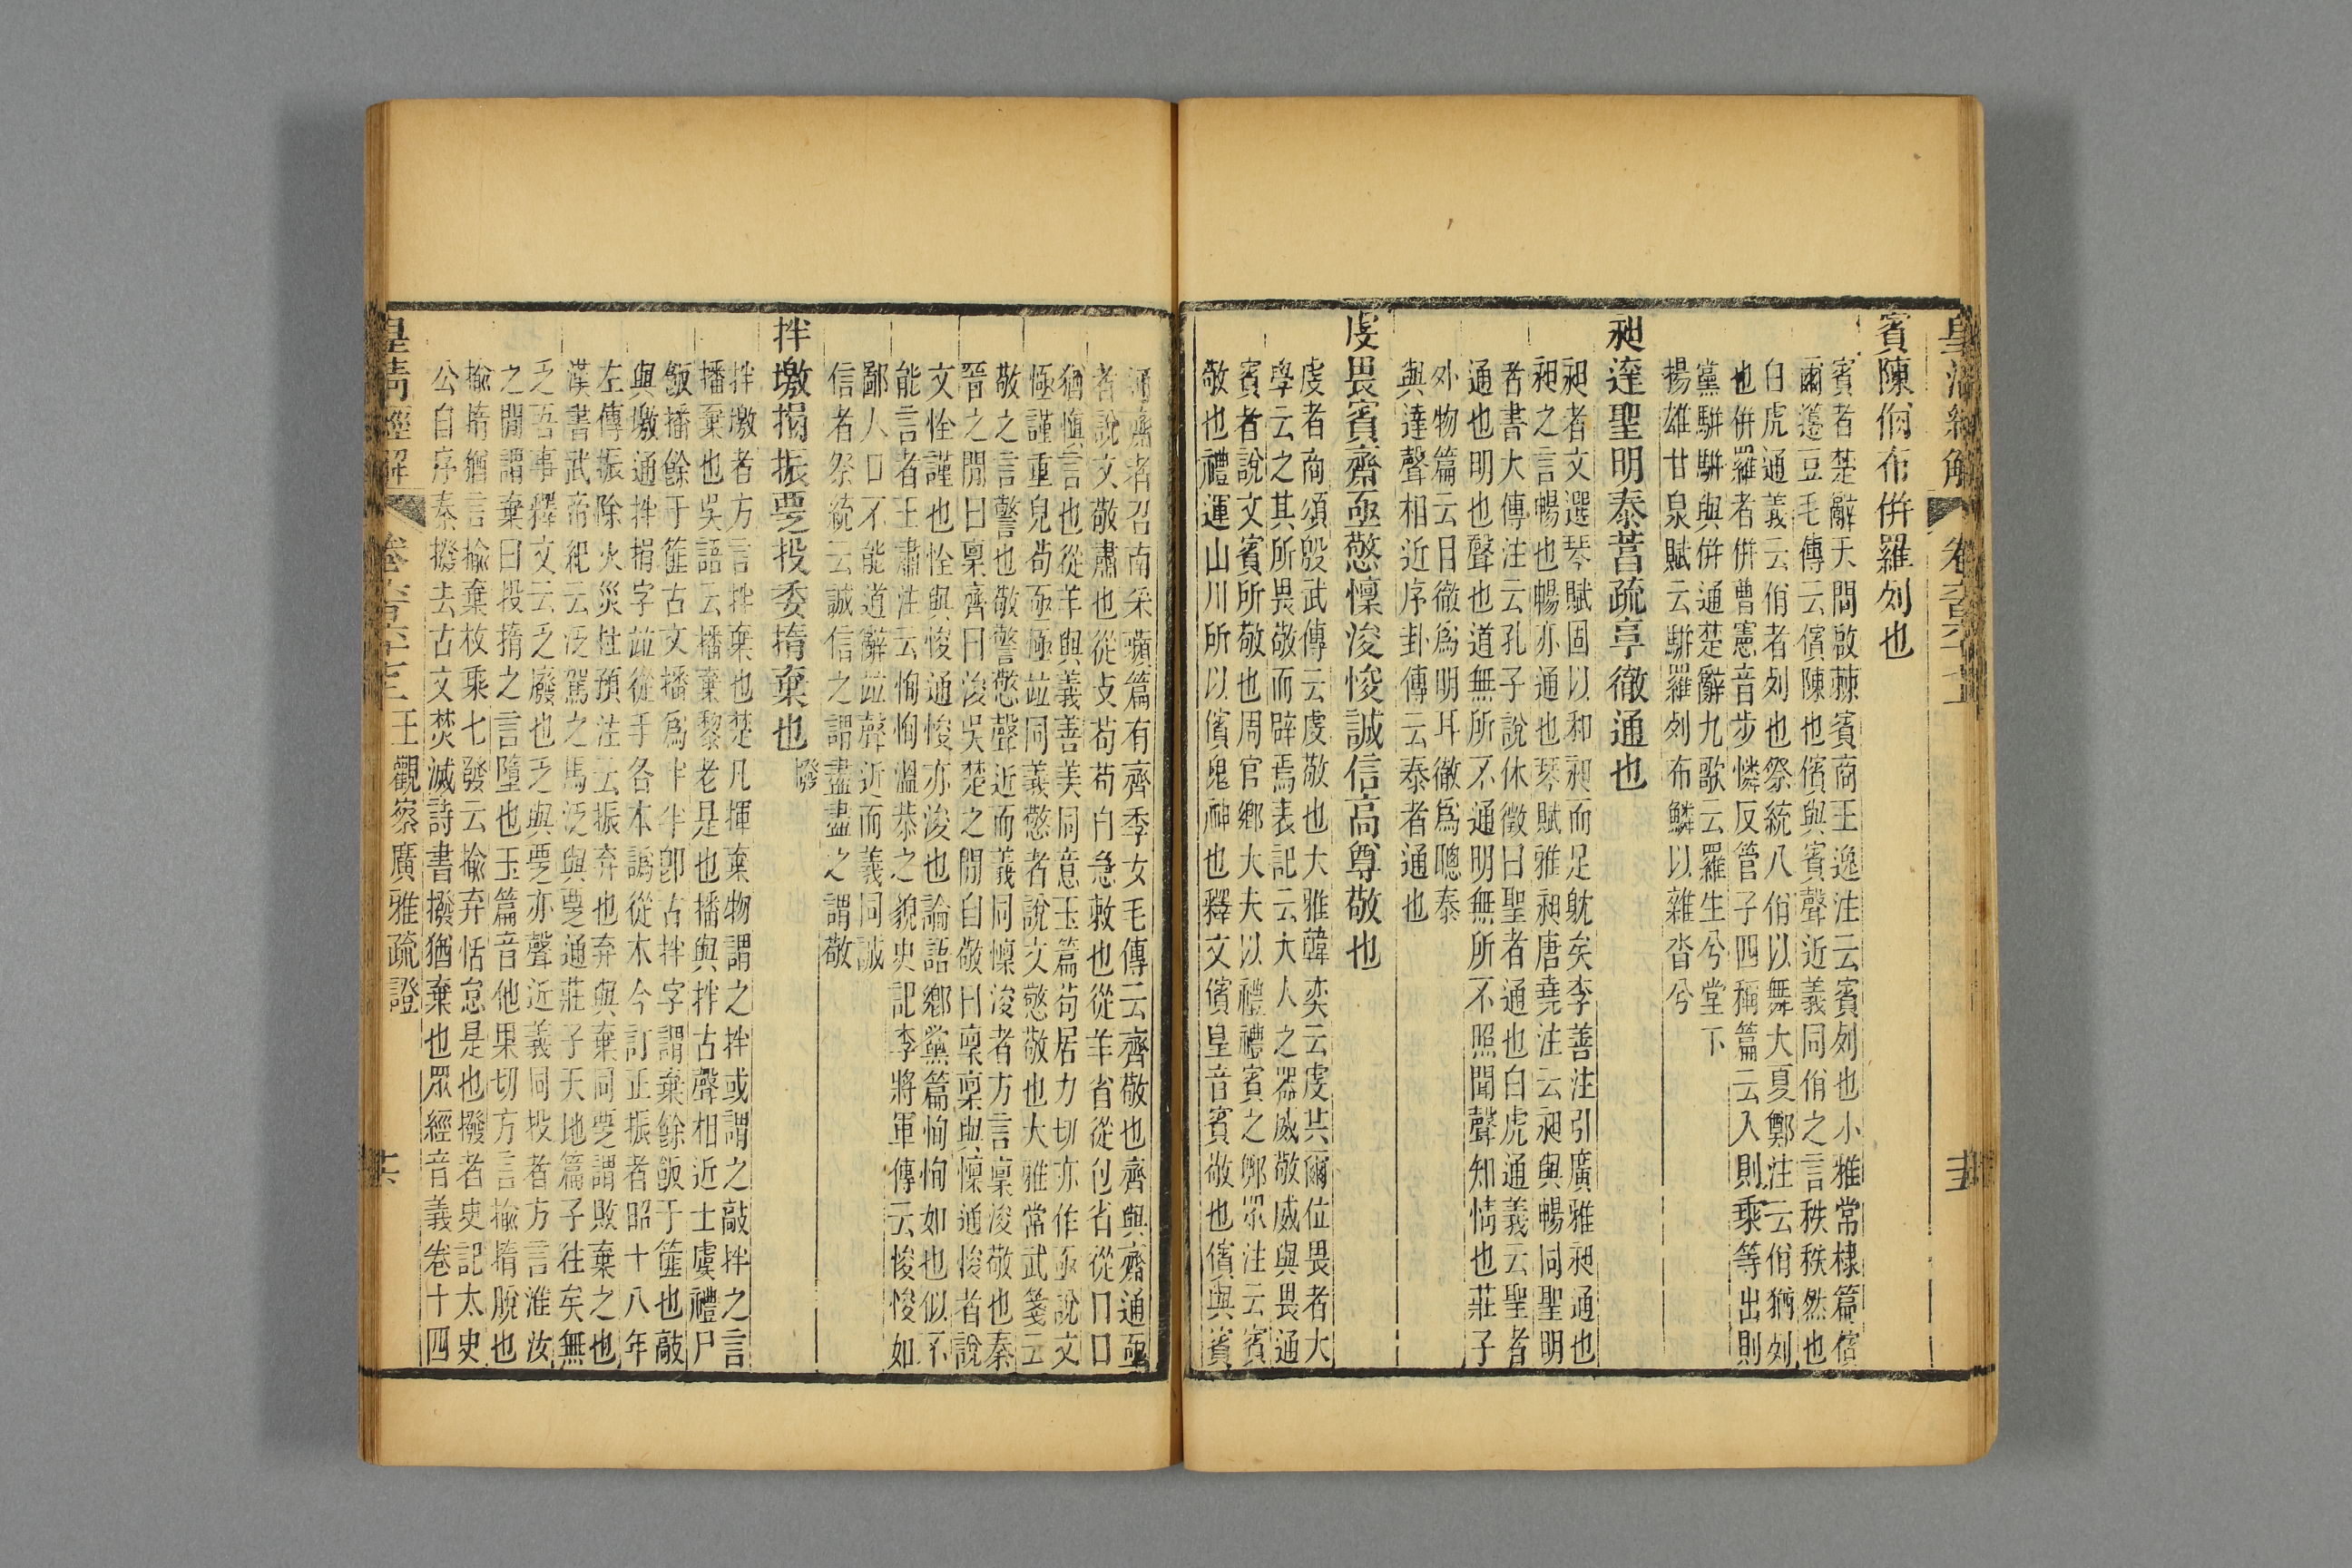 皇清經解 卷六百六十七 圭
賓陳㑾布併羅列也
賓者楚辭天問啟棘賓商王逸注云賓列也小雅常棣篇儐
爾籩豆毛傳云儐陳也儐與賓聲近義同㑾之言秩秩然也
白虎通義云㑾者列也祭統八㑾以舞大夏鄭注云㑾猶列
也併羅者併曹憲音步憐反管子四稱篇云入則乘等出則
黨駢駢與併通楚辭九歌云羅生兮堂下
揚雄甘泉賦云駢羅列布鱗以雜沓兮
昶達聖明泰䓪疏亯徹通也
昶者文選琴賦固以和昶而足躭矣李善注引廣雅昶通也
昶之言暢也暢亦通也琴賦雅昶唐堯注云昶與暢同聖明
者書大傳注云孔子說休徵曰聖者通也白虎通義云聖者
通也明也聲也道無所不通明無所不照聞聲知情也莊子
外物篇云目徹為明耳徹為聰泰
與達聲相近序卦傳云泰者通也
虔畏賓齋亟憼懍浚悛誠信高尊敬也
虔者商頌殷武傳云虔敬也大雅韓奕云虔共爾位畏者大
學云之其所畏敬而辟焉表記云大人之器威敬威與畏通
賓者說文賓所敬也周官鄉大夫以禮禮賓之鄭眾注云賓
敬也禮運山川所以儐鬼神也釋文儐皇音賓敬也儐與賓
通齋者召南采蘋篇有齊季女毛傳云齊敬也齊與齋通亟
者說文敬肅也從攴苟苟自急敕也從羊省從勹省從口口
猶慎言也從羊與義善美同意玉篇苟居力切亦作亟說文
悈謹重皃苟亟悈竝同義憼者說文憼敬也大雅常武箋云
敬之言警也敬警憼聲近而義同懍浚者方言稟浚敬也秦
晉之閒曰稟齊曰浚吳楚之閒自敬曰稟稟與懍通悛者說
文恮謹也恮與悛通悛亦浚也論語鄉黨篇恂恂如也似不
能言者王肅注云恂恂溫恭之貌史記李將軍傳云悛悛如
鄙人口不能道辭竝聲近而義同誠
信者祭統云誠信之謂盡盡之謂敬
拌墩捐振㪏投委揞棄也 撥
拌墩者方言拌棄也楚凡揮棄物謂之拌或謂之敲拌之言
播棄也吳語云播棄黎老是也播與拌古聲相近士虞禮尸
飯播餘于篚古文播為半半即古拌字謂棄餘飯于篚也敲
與墩通拌捐字竝從手各本譌從木今訂正振者昭十八年
左傳振除火災杜預注云振弃也弃與棄同㪏謂敗棄之也
漢書武帝紀云泛駕之馬泛與㪏通莊子天地篇子往矣無
乏吾事釋文云乏廢也乏與㪏亦聲近義同投者方言淮汝
之閒謂棄曰投揞之言墮也玉篇音他果切方言揄揞脫也
揄揞猶言揄棄枚乘七發云揄弃恬怠是也撥者史記太史
公自序秦撥去古文焚滅詩書撥猶棄也眾經音義卷十四
皇清經解 卷六百六十七 王觀察廣雅疏證